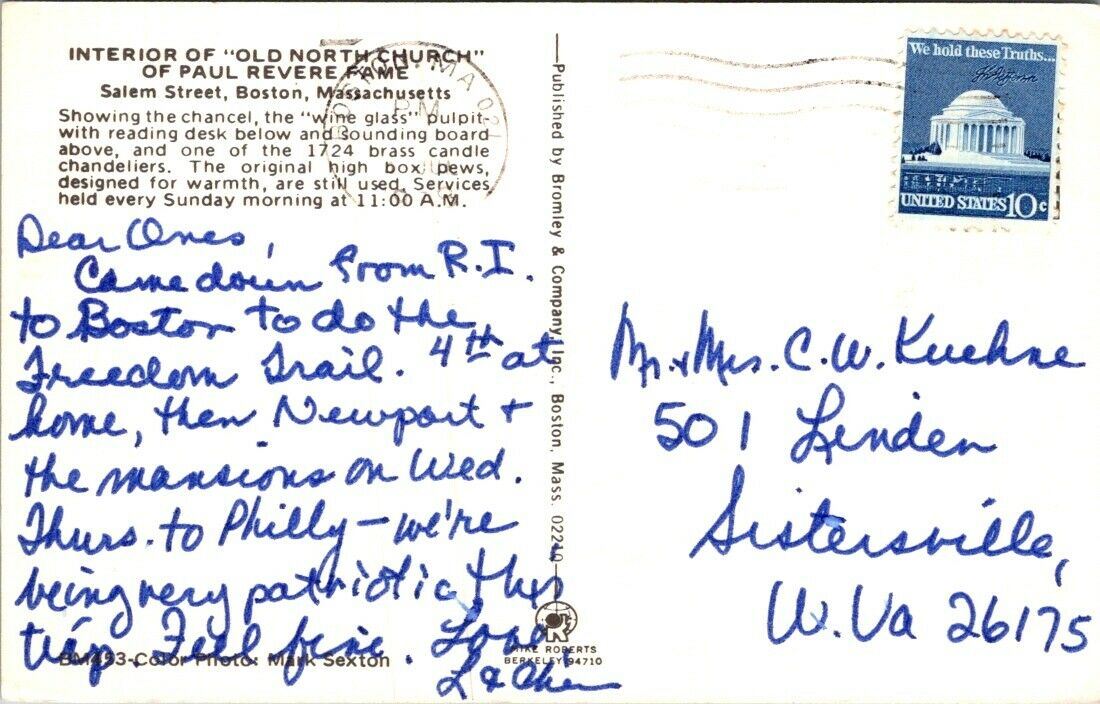 INTERIOR OF "OLD NORTH CHURCH"
OF PAUL REVERE FAME
Salem Street, Boston, Massachusetts
Showing the chancel, the "wine glass" pulpit-
with reading desk below and sounding board
above, and one of the 1724 brass candle
chandeliers. The original high box pews,
designed for warmth, are still used. Services
held every Sunday morning at 11:00 A.M.
Dear Ones,
Came down from R.I.
to Boston to do the
Freedom Trail. 4th at
home, then Newport +
the mansions on Wed.
Thurs. to Philly - we're
being very patriotic this
trip. Feel fine. Love
L &
BM493-Color Photo: Mark Sexton
Published by Bromley & Company, Inc., Boston, Mass. 02210
MIKE ROBERTS
BERKELEY 94710
MA
PM
We hold these Truths...
UNITED STATES 10c
Mr. & Mrs. C. W. Kuehne
501 Linden
Sistersville,
W. Va 26175